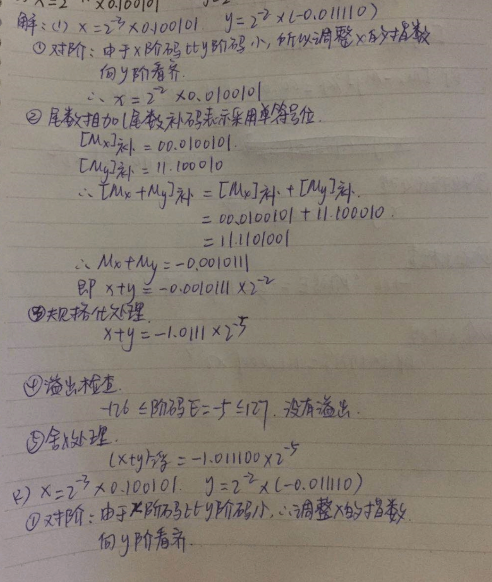 解: (1) x=2⁻³×0.100101 y=2⁻²×(-0.011110)
①对阶: 由于x阶码比y阶码小, 所以调整x的指数
向y阶看齐.
∴ x=2⁻²×0.0100101
②尾数相加(尾数补码表示采用单符号位.
[Mx]补 = 00.0100101.
[My]补 = 11.100010
∴ [Mx+My]补 = [Mx]补 + [My]补.
= 00.0100101 + 11.100010.
= 11.1101001
∴ Mx+My = -0.0010111
即 x+y = -0.0010111×2⁻²
③规格化处理.
x+y = -1.0111×2⁻⁵
④溢出检查.
-126 ≤阶码E=-5≤127. 没有溢出.
⑤舍入处理.
(x+y)浮 = -1.011100×2⁻⁵
2) x=2⁻³×0.100101. y=2⁻²×(-0.011110)
①对阶: 由于x阶码比y阶码小, ∴调整x的指数
向y阶看齐.